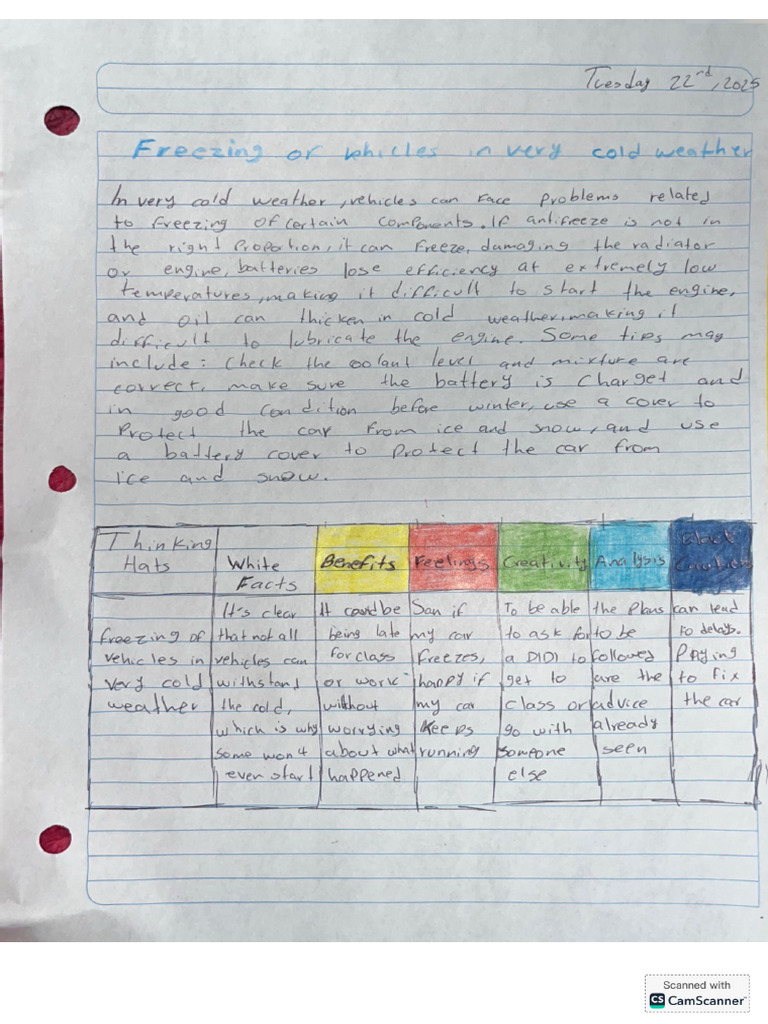 Tuesday 22nd, 2025
Freezing of vehicles in very cold weather
In very cold weather, vehicles can face problems related
to freezing of certain components. If antifreeze is not in
the right proportion, it can freeze, damaging the radiator
or engine, batteries lose efficiency at extremely low
temperatures, making it difficult to start the engine,
and oil can thicken in cold weather, making it
difficult to lubricate the engine. Some tips may
include: Check the coolant level and mixture are
correct, make sure the battery is charget and
in good condition before winter, use a cover to
Protect the car from ice and snow, and use
a battery cover to protect the car from
ice and snow.
Thinking Hats
White Facts
Benefits
Feelings
Creativity
Analysis
Black Caution
freezing of
vehicles in
very cold
weather
It's clear
that not all
vehicles can
withstand
the cold,
which is why
some won't
even start
It could be
being late
for class
or work
without
worrying
about what
happened
San if
my car
freezes,
happy if
my car
keeps
running
To be able
to ask for
a DIDI to
get to
class or
go with
someone
else
the plans
to be
followed
are the
advice
already
seen
can lead
to delays.
Paying
to fix
the car
Scanned with
CS CamScanner